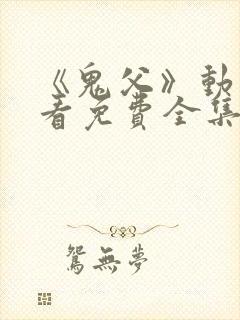 《鬼父》動
看免費全集
鴛無夢